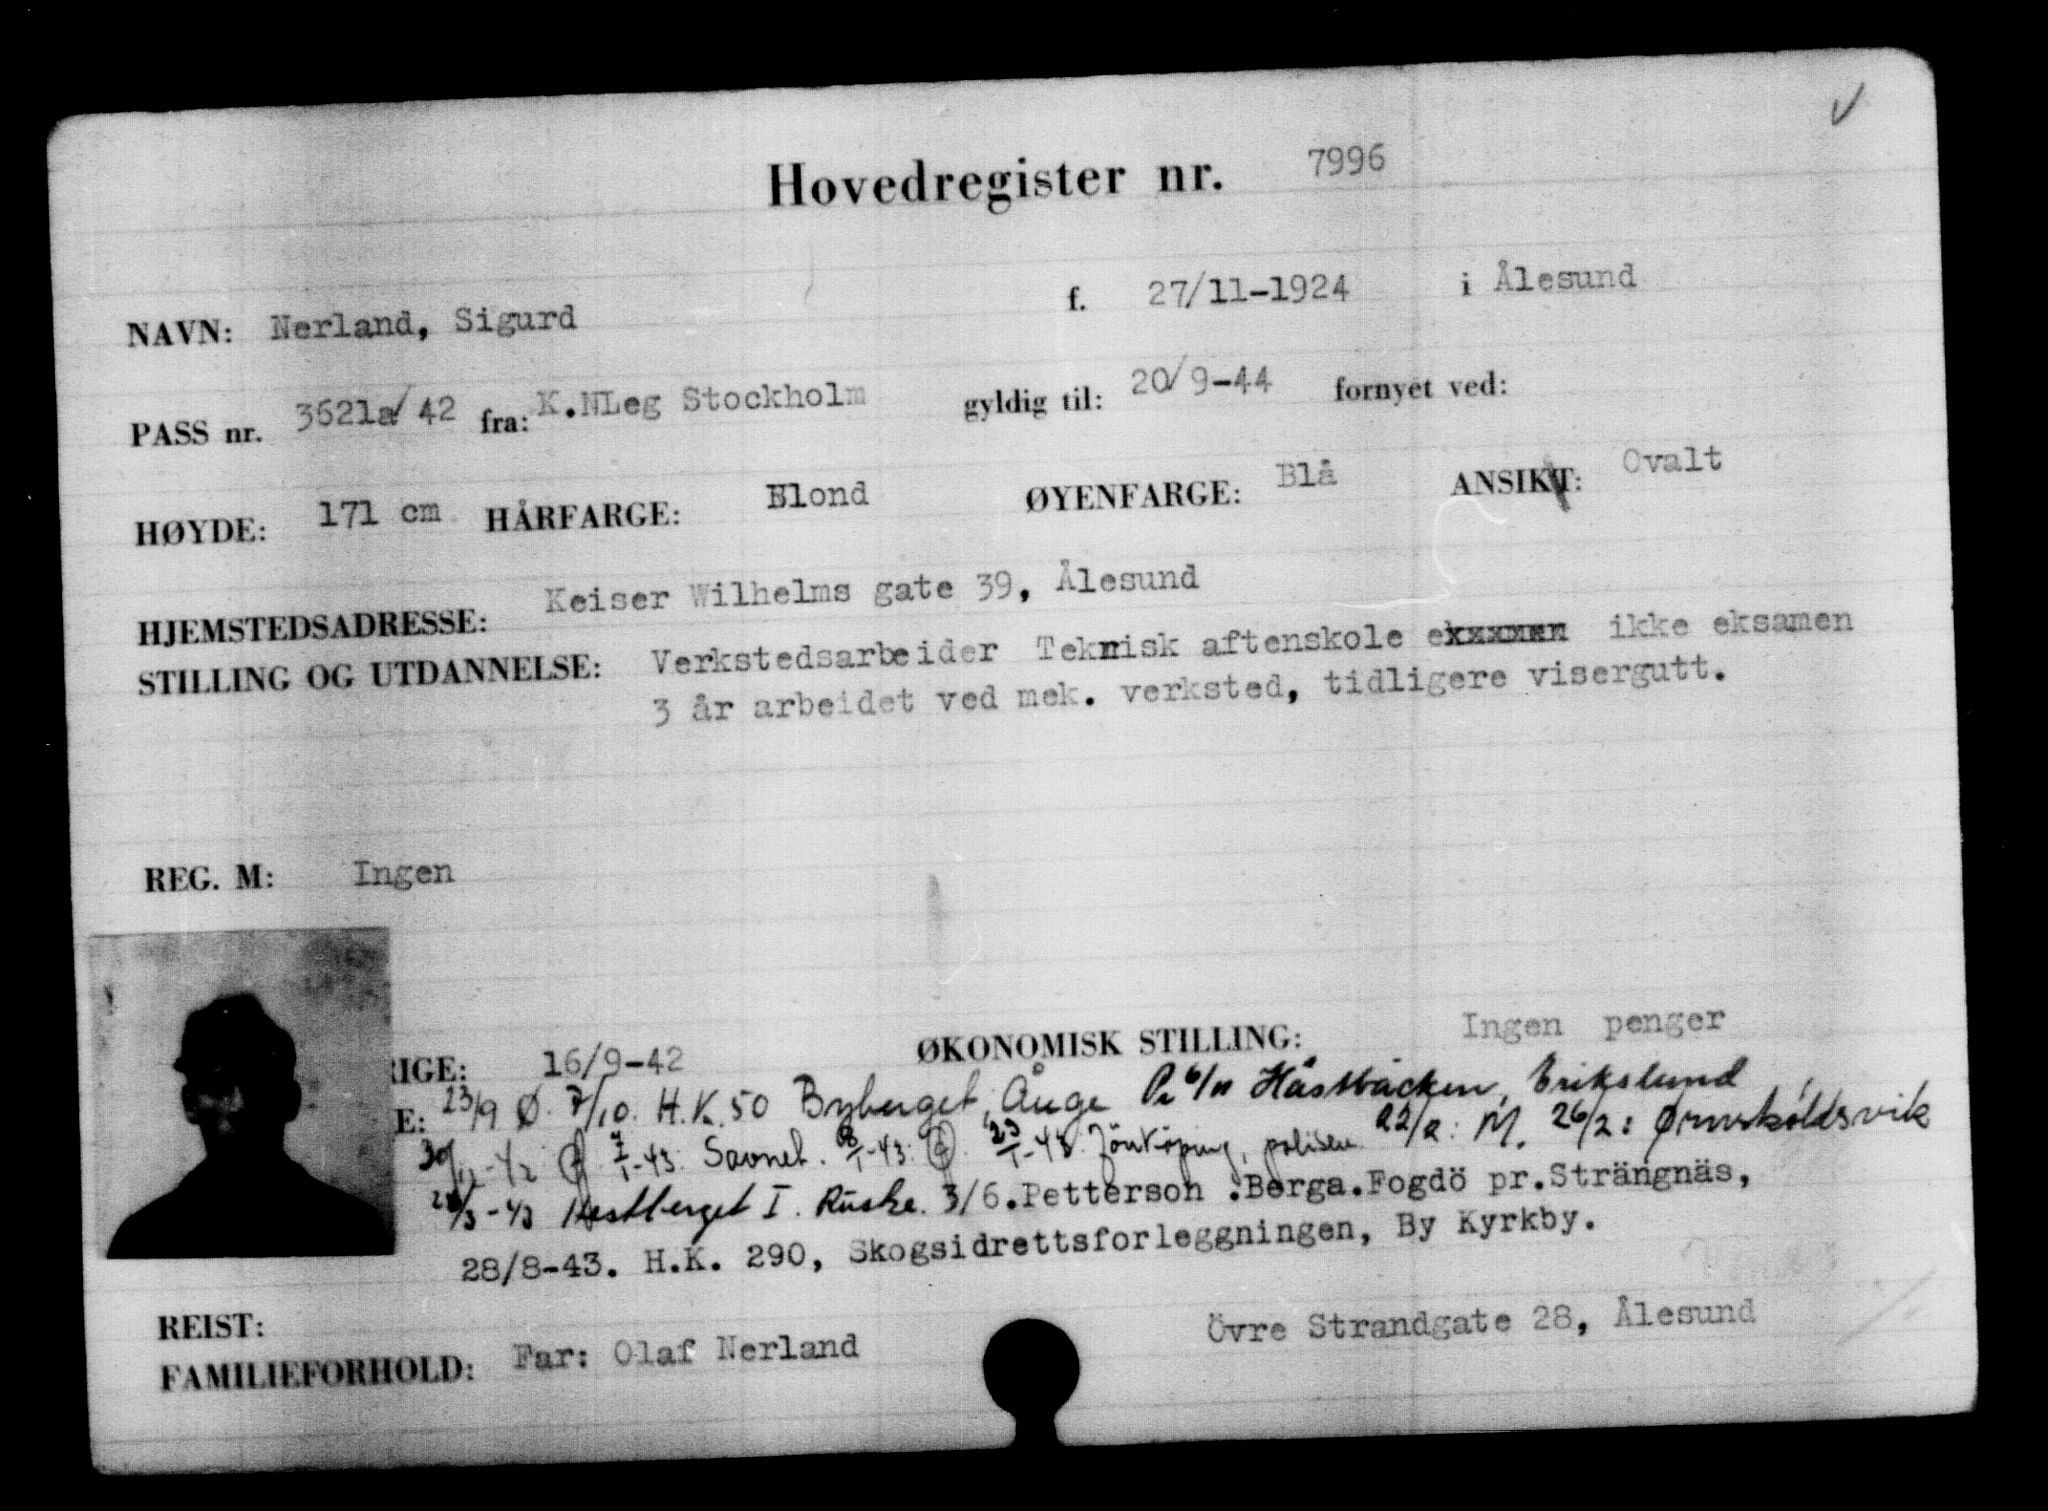 Hovedregister nr. 7996
NAVN: Nerland, Sigurd f. 27/11-1924 i Ålesund
PASS nr. 3621a/42 fra: K.NLeg Stockholm gyldig til: 20/9-44 fornyet ved:
HØYDE: 171 cm HÅRFARGE: Blond ØYENFARGE: Blå ANSIKT: Ovalt
HJEMSTEDSADRESSE: Keiser Wilhelms gate 39, Ålesund
STILLING OG UTDANNELSE: Verkstedsarbeider Teknisk aftenskole ikke eksamen
3 år arbeidet ved mek. verksted, tidligere visergutt.
REG. M: Ingen
RIGE: 16/9-42 ØKONOMISK STILLING: Ingen penger
E: 23/9 Ø. 7/10. H.K. 50 Byberget, Ånge 6/11 Håstbacken, Erikslund
30/12-42 7/1-43. Savnet. 8/1-43. 23/1-43. Jönköping, polisen 22/2: M. 26/2: Ørnsköldsvik
Hestberget I. Ruske. 3/6. Petterson .Berga.Fogdö pr.Strängnäs,
28/8-43. H.K. 290, Skogsidrettsforleggningen, By Kyrkby.
REIST:
FAMILIEFORHOLD: Far: Olaf Nerland Övre Strandgate 28, Ålesund